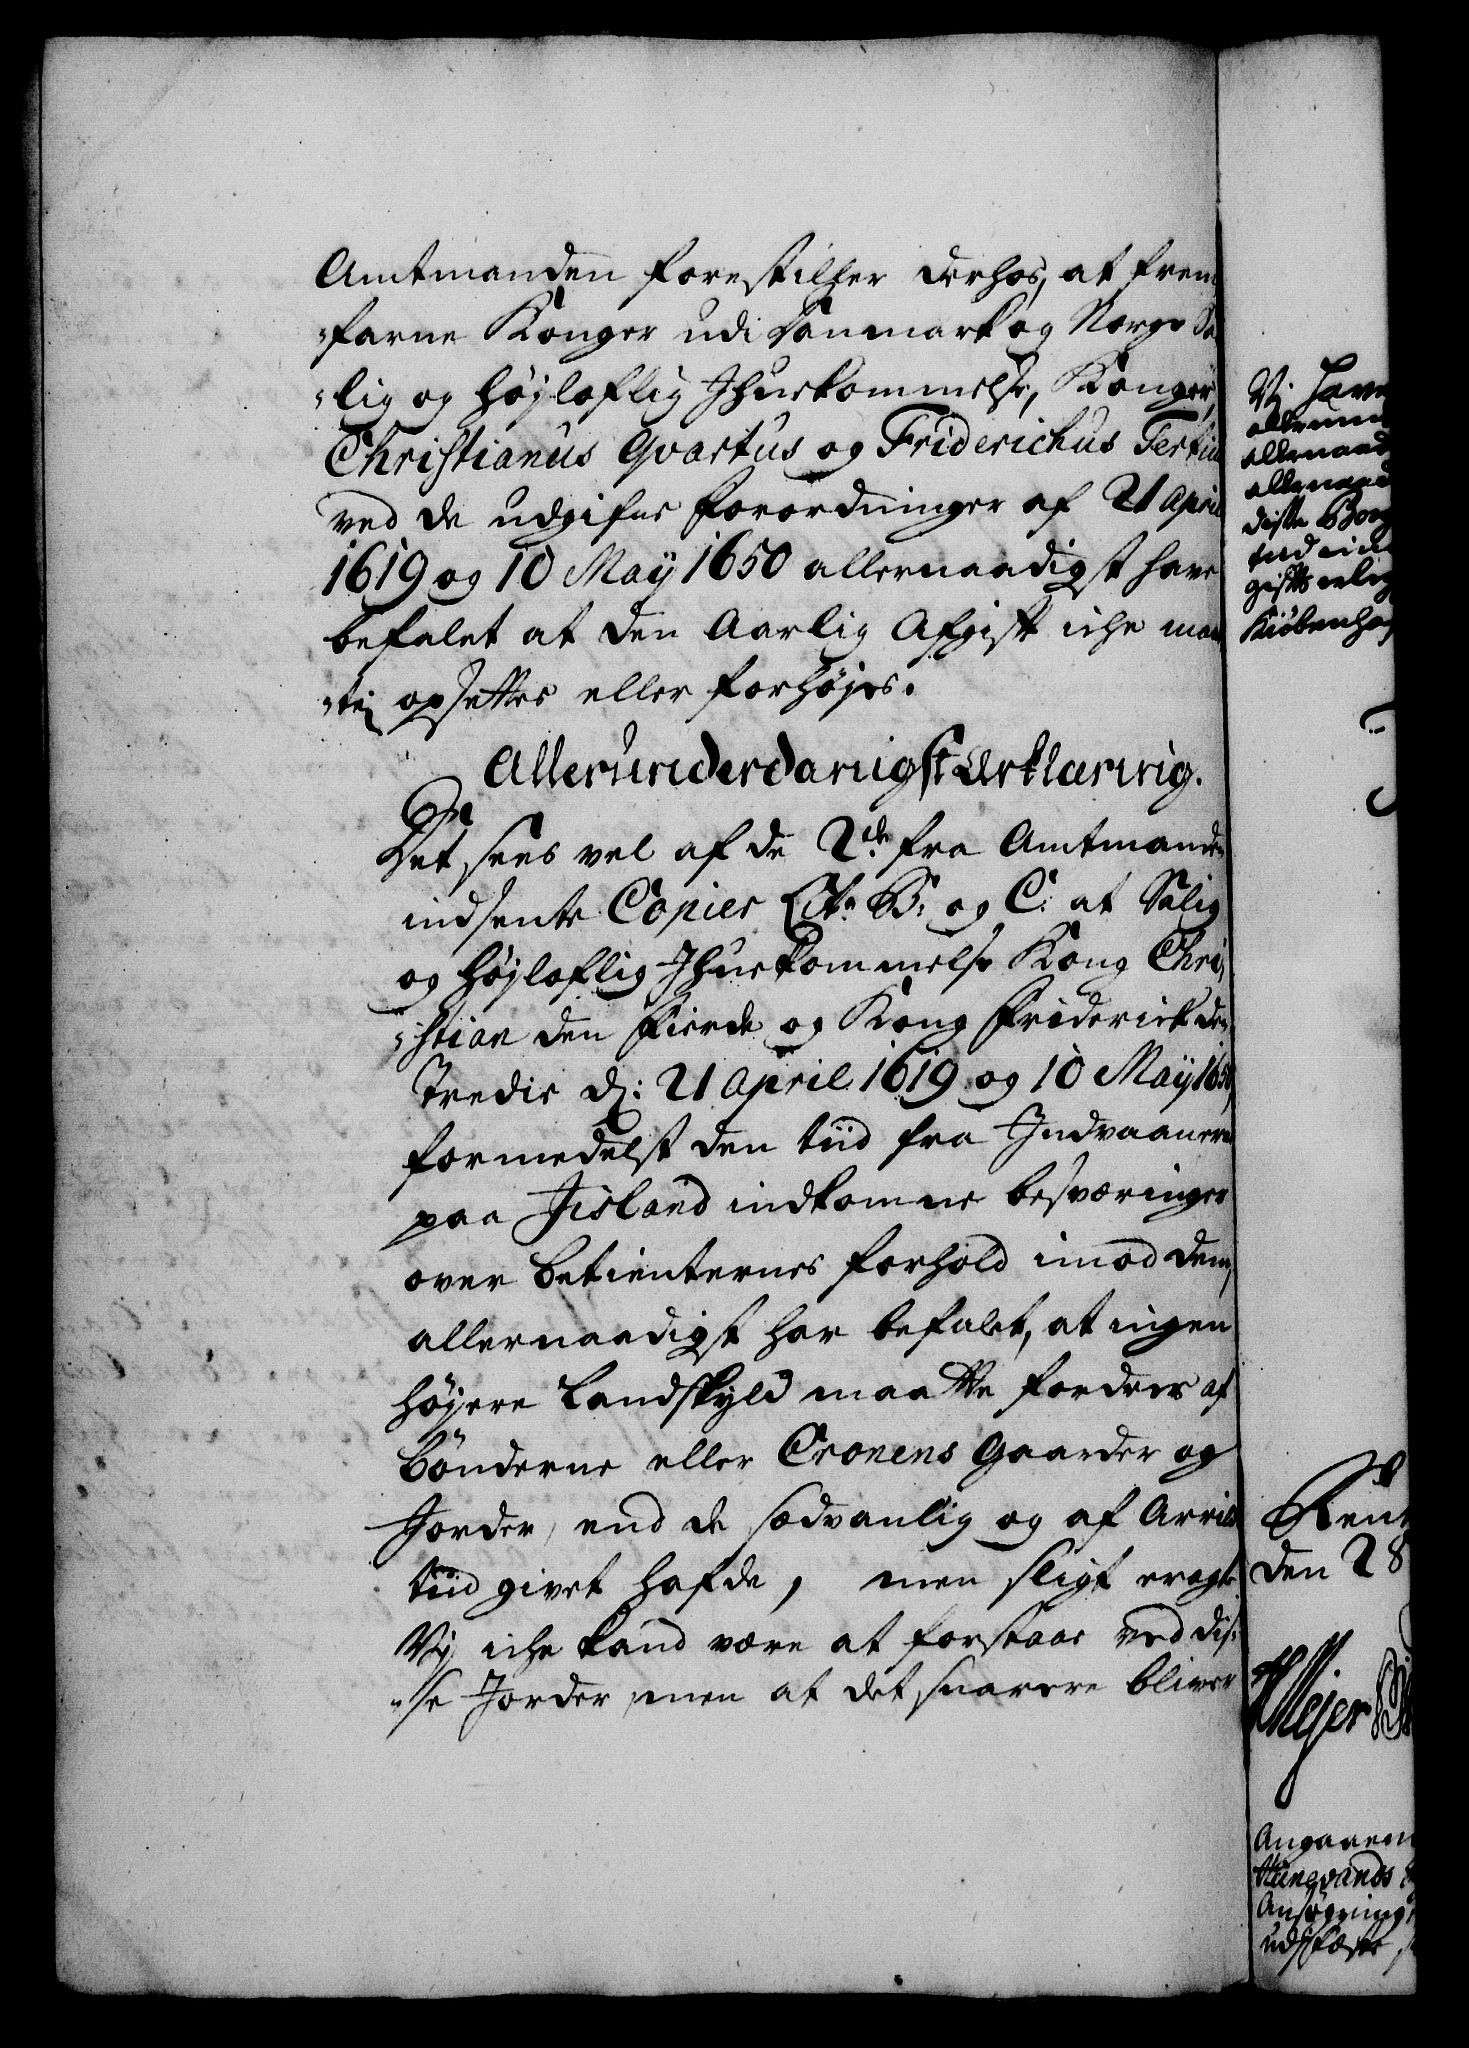 Amtmanden forestiller derhos, at frem
"farne Konger udi Danmark og Norge Sa
"lig og høyloflig Jhuekommelse, Konger,
Christianus Qvartus og Friderichus Tertius
ved de udgifne forordninger af 21 April
1619 og 10 May 1650 allernaadigst have
befalet at den Aarlig Afgift iche maa
"tte opsettes eller forhøyes.
Allerunderdanigst Erklæring.
Det sees vel af de 2de fra Amtmanden
indsente Copier Litr B: og C: at Salig
og høyloflig Jhuekommelse Kong Chri
"stian den Fierde og Kong Friderich den
Tredie d: 21 April 1619 og 10 May 1650,
formedelst den tiid fra Indvaanerne
paa Jisland indkomne besværinger
over betienternes forhold imod dem,
allernaadigst har befalet, at ingen
høyere Landskyld maatte fordres af
bønderne eller Cronens Gaarder og
Jorder, end de sædvanlig og af Arrilds
tiid givet hafde, men sligt eragte
Vy iche kand være at forstaae ved dis
"se Jorder, men at det snarere bliver
Vj have
allerund
allernaad
allernaad
diste
giftes
Kiøbenhaf
Rent
den 28
Mejer
Angaaen
Ansøgning
udj